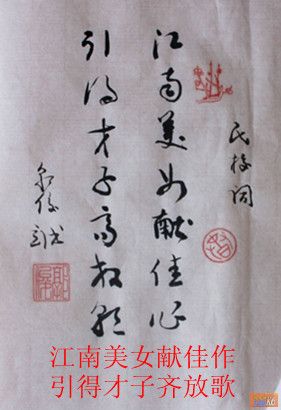 江南美女献佳作
引得才子齐放歌
江南美女献佳作
引得才子齐放歌